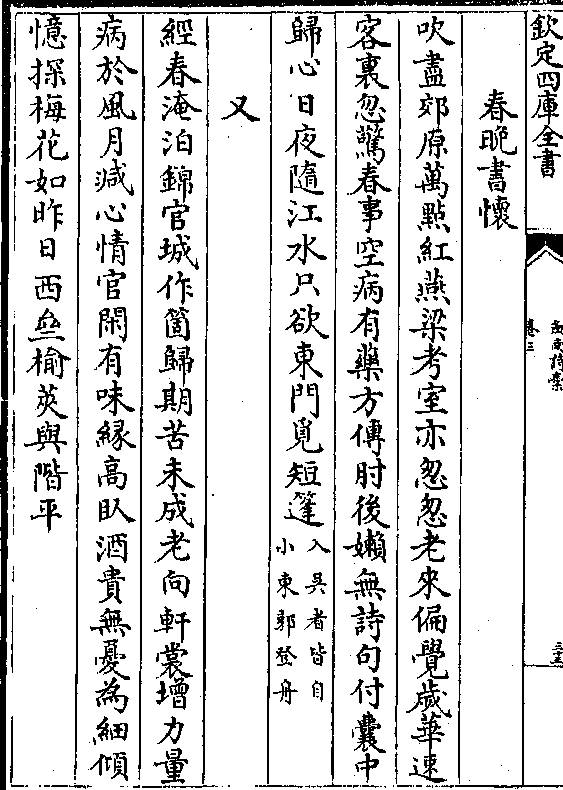 欽定四庫全書
卷三
春晚書懷
吹盡郊原萬㸃紅燕梁考室亦忽忽老來偏覺歲華速
客裏忽驚春事空病有藥方傳肘後嬾無詩句付囊中
歸心日夜隨江水只欲東門覓短篷入吳者皆自
小東郭登舟
又
經春淹泊錦官城作箇歸期苦未成老向軒裳增力量
病於風月減心情官閑有味緣高臥酒貴無憂為細傾
憶探梅花如昨日西亝榆莢與階平